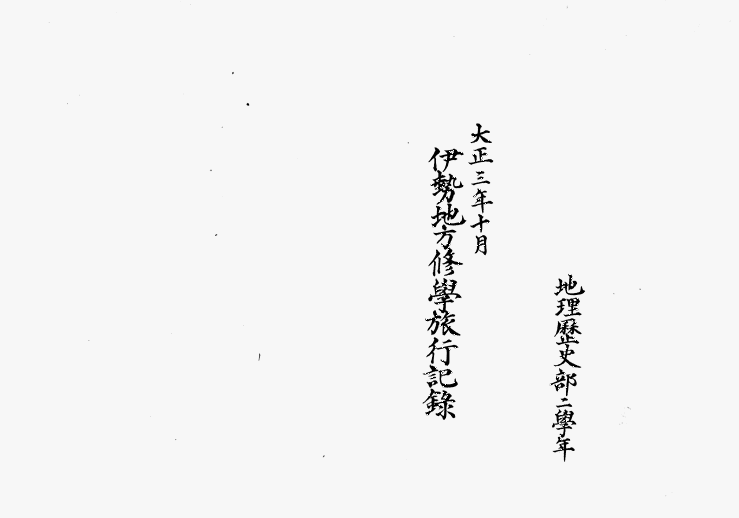 地理歷史部二學年
大正三年十月
伊勢地方修學旅行記錄